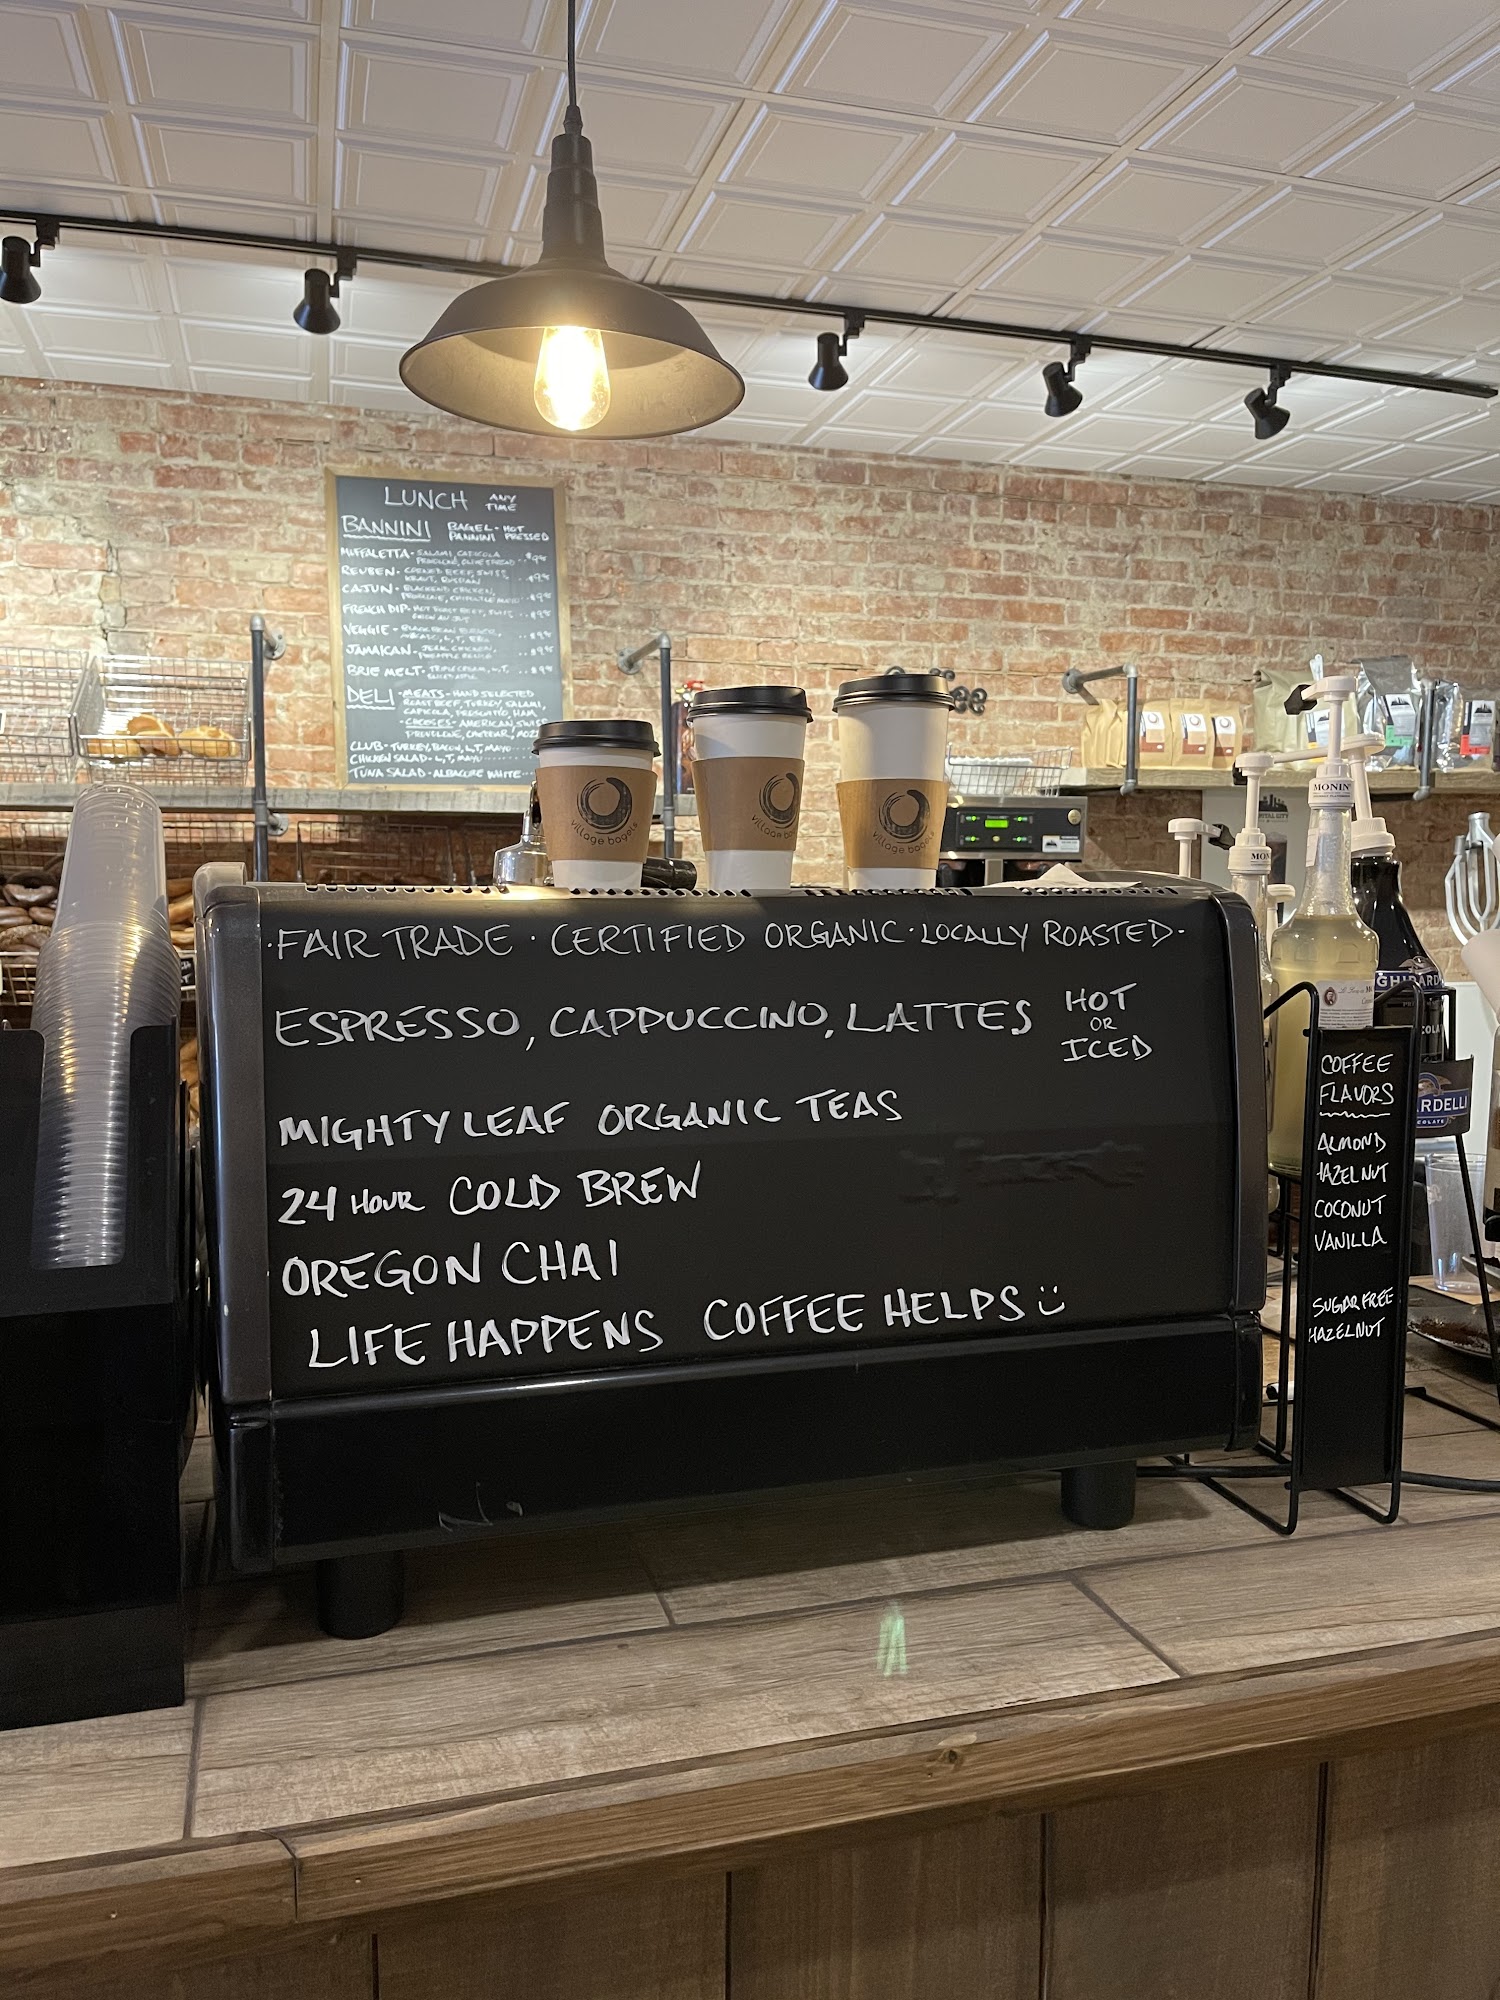 LUNCH ANY TIME
BANNINI BAGEL - HOT PANNINI PRESSED
MUFFALETTA - SALAMI, CAPICOLA
PROVELONE, OLIVE SPREAD
REUBEN - CORNED BEEF, SWISS,
KRAUT, RUSSIAN
CAJUN - BLACKEND CHICKEN,
FRENCH DIP - HOT ROAST BEEF, SWISS
VEGGIE - BLACK BEAN BURGER,
JAMAICAN - JERK CHICKEN,
BRIE MELT - TRIPLE CREAM, L, T,
DELI - MEATS - HAND SELECTED
ROAST BEEF, TURKEY, SALAMI,
CAPICOLA, PROSCIUTTO, HAM
- CHEESES - AMERICAN, SWISS
PROVELONE, CHEDDAR, MOZZ
CLUB - TURKEY, BACON, L, T, MAYO
CHICKEN SALAD - L, T, MAYO
TUNA SALAD - ALBACORE WHITE
village bagels
village bagels
village bagels
· FAIR TRADE · CERTIFIED ORGANIC · LOCALLY ROASTED ·
ESPRESSO, CAPPUCCINO, LATTES HOT OR ICED
MIGHTY LEAF ORGANIC TEAS
24 HOUR COLD BREW
OREGON CHAI
LIFE HAPPENS COFFEE HELPS
MONIN
MON
GHIRARD
ARDELLI
COFFEE
FLAVORS
ALMOND
HAZELNUT
COCONUT
VANILLA
SUGAR FREE
HAZELNUT